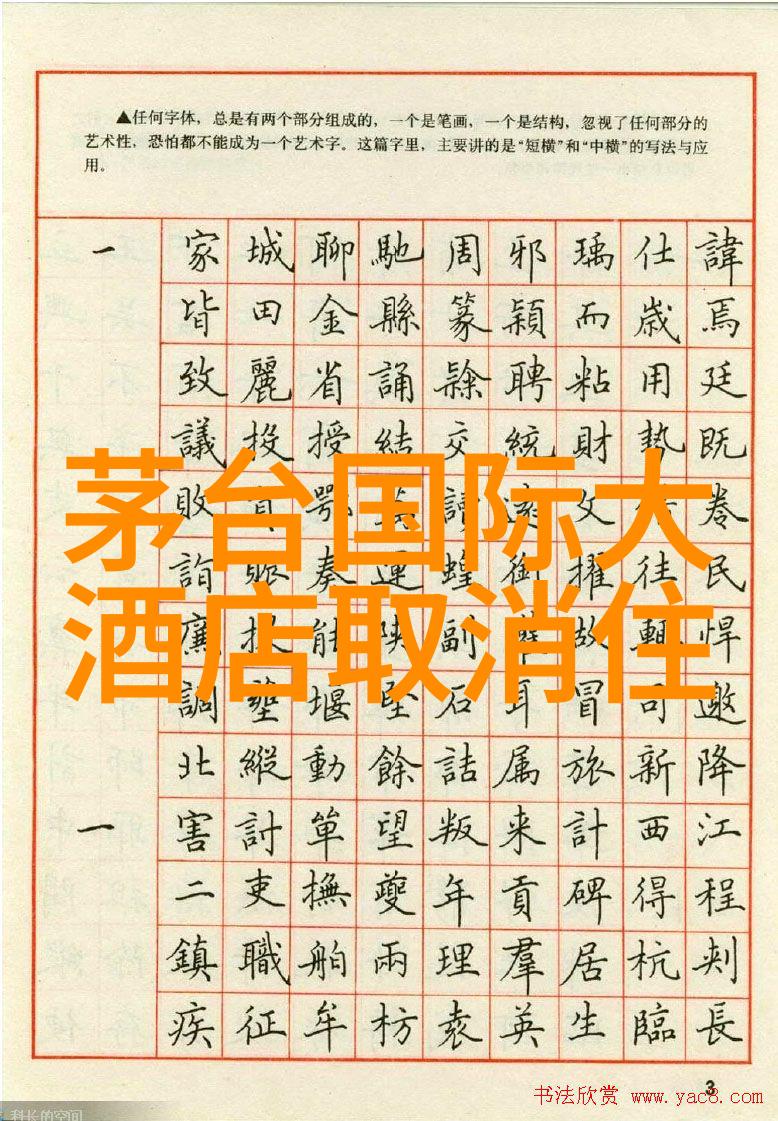 ▲任何字体，总是有两个部分组成的，一个是笔画，一个是结构，忽视了任何部分的
艺术性，恐怕都不能成为一个艺术字。这篇字里，主要讲的是“短横”和“中横”的写法与应
用。
一 家 城 聊 馳 周 邪 瑀 仕 諱
皆 田 金 縣 篆 潁 而 歳 焉
致 麗 省 誦 隸 聘 粘 用 廷
議 投 授 結 交 統 財 勢 既
茅台国际大
敗 鄂 讀 遠 文 卷
詣 賑 奏 運 蝗 銜 擢 往 民
酒店取消住
廉 扶 能 陝 副 故 輒 悍
調 堰 石 耳 冒 可 邀
北 縱 動 餘 詰 属 旅 新 降
一 害 討 単 望 叛 来 計 西 江
二 吏 撫 夔 年 貢 碑 得 程
鎮 職 舶 兩 理 羣 居 杭 刺
疾 征 牟 枋 袁 英 生 臨 長
3
书法欣赏 www.yac8.com
科长的空间